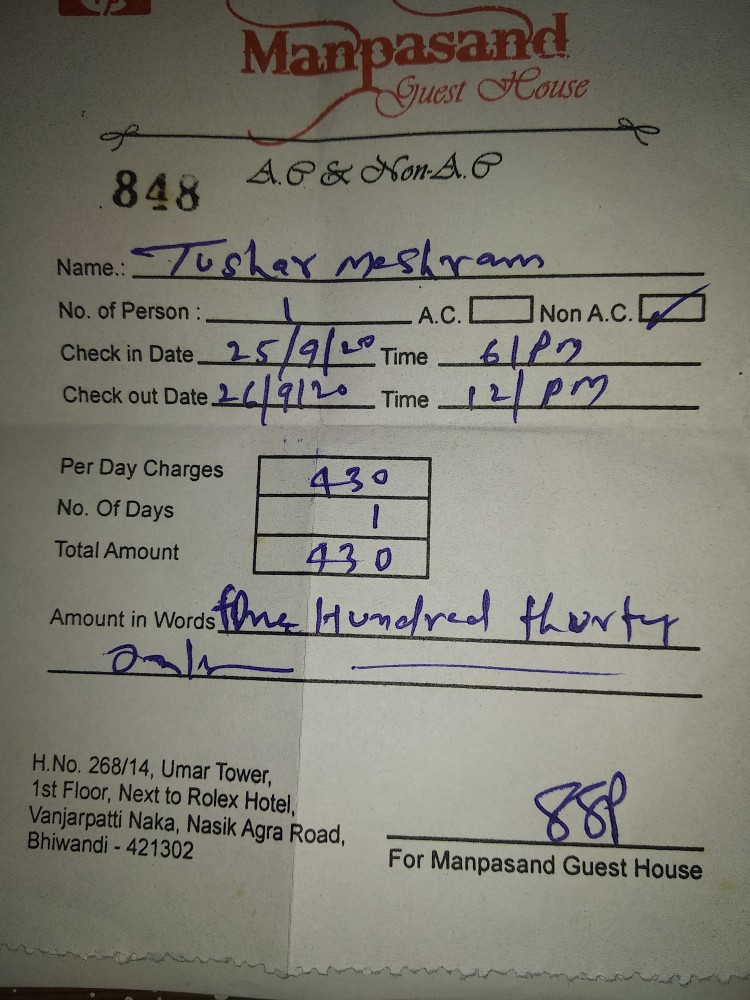 Manpasand
Guest House
A.C & Non-A.C
848
Name.: Tushar Meshram
No. of Person : 1 A.C. Non A.C.
Check in Date 25/9/20 Time 6/PM
Check out Date 26/9/20 Time 12/PM
Per Day Charges 430
No. Of Days 1
Total Amount 430
Amount in Words Hundred thurty
H.No. 268/14, Umar Tower,
1st Floor, Next to Rolex Hotel,
Vanjarpatti Naka, Nasik Agra Road,
Bhiwandi - 421302
For Manpasand Guest House